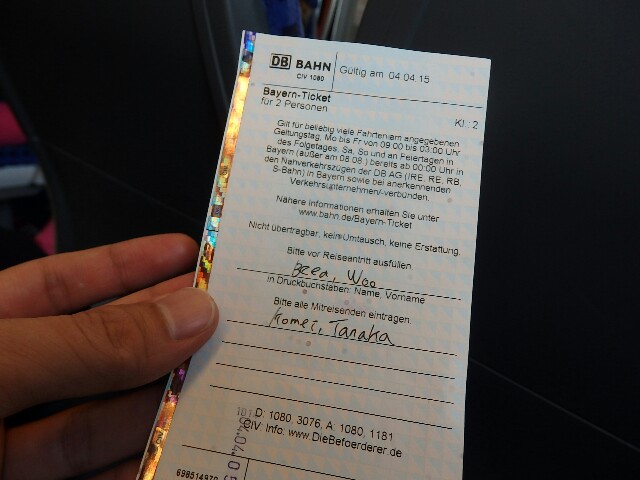 DB BAHN
CIV 1080
Gültig am 04.04.15
Bayern-Ticket
für 2 Personen
Kl : 2
Gilt für beliebig viele Fahrten am angegebenen
Geltungstag, Mo bis Fr von 09:00 bis 03:00 Uhr
des Folgetages; Sa, So und an Feiertagen in
Bayern (außer am 08.08.) bereits ab 00:00 Uhr in
den Nahverkehrszügen der DB AG (IRE, RE, RB,
S-Bahn) in Bayern sowie bei anerkennenden
Verkehrsunternehmen/-verbünden.
Nähere Informationen erhalten Sie unter
www.bahn.de/Bayern-Ticket
Nicht übertragbar, kein Umtausch, keine Erstattung.
Bitte vor Reiseantritt ausfüllen.
Woo
in Druckbuchstaben: Name, Vorname
Bitte alle Mitreisenden eintragen.
Tanaka
D: 1080 3076, A: 1080, 1181
CIV: Info. www.DieBefoerderer.de